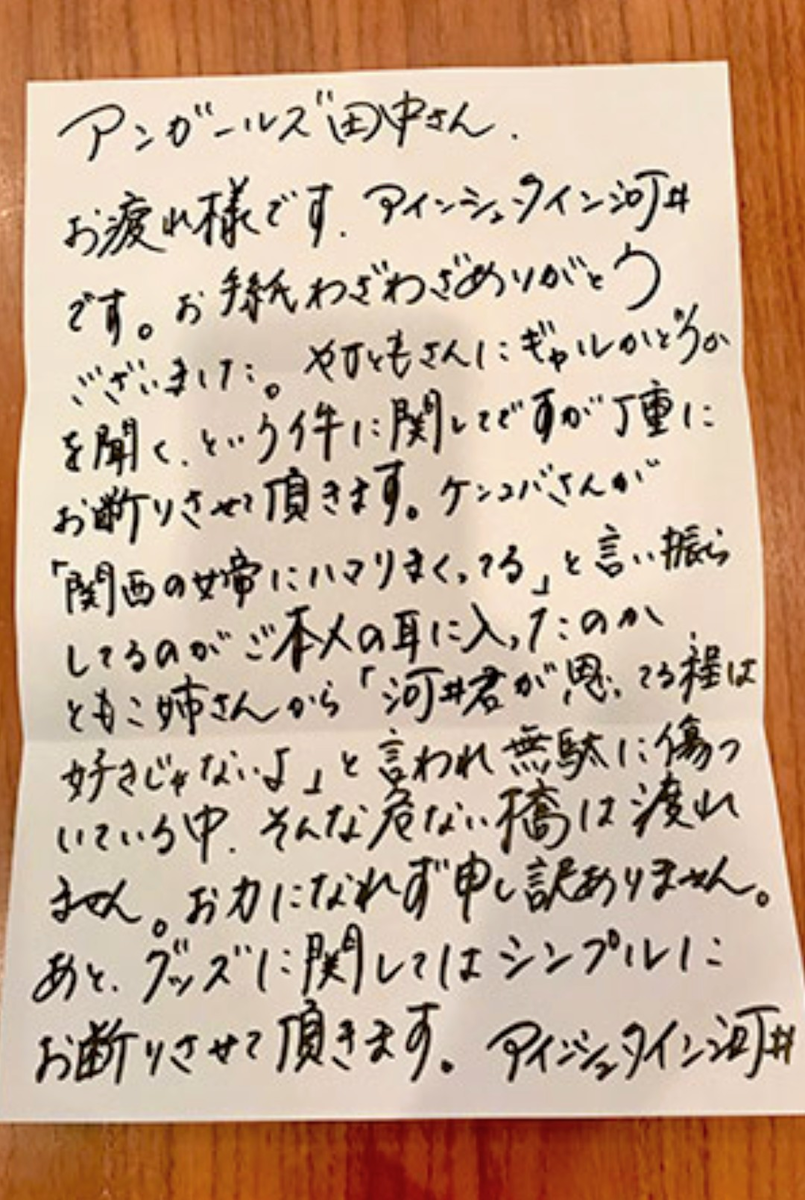 アンガールズ田中さん.
お疲れ様です. アインシュタイン河井
です。お手紙わざわざありがとう
ございました。やすともさんにギャルかどうか
を聞く、という件に関してですが丁重に
お断りさせて頂きます。ケンコバさんが
「関西の女帝にハマりまくってる」と言い振ら
してるのがご本人の耳に入ったのか、
ともこ姉さんから「河井君が思ってる程は
好きじゃないよ」と言われ無駄に傷つ
いている中、そんな危ない橋は渡れ
ません。お力になれず申し訳ありません。
あと、グッズに関してはシンプルに
お断りさせて頂きます。 アインシュタイン河井